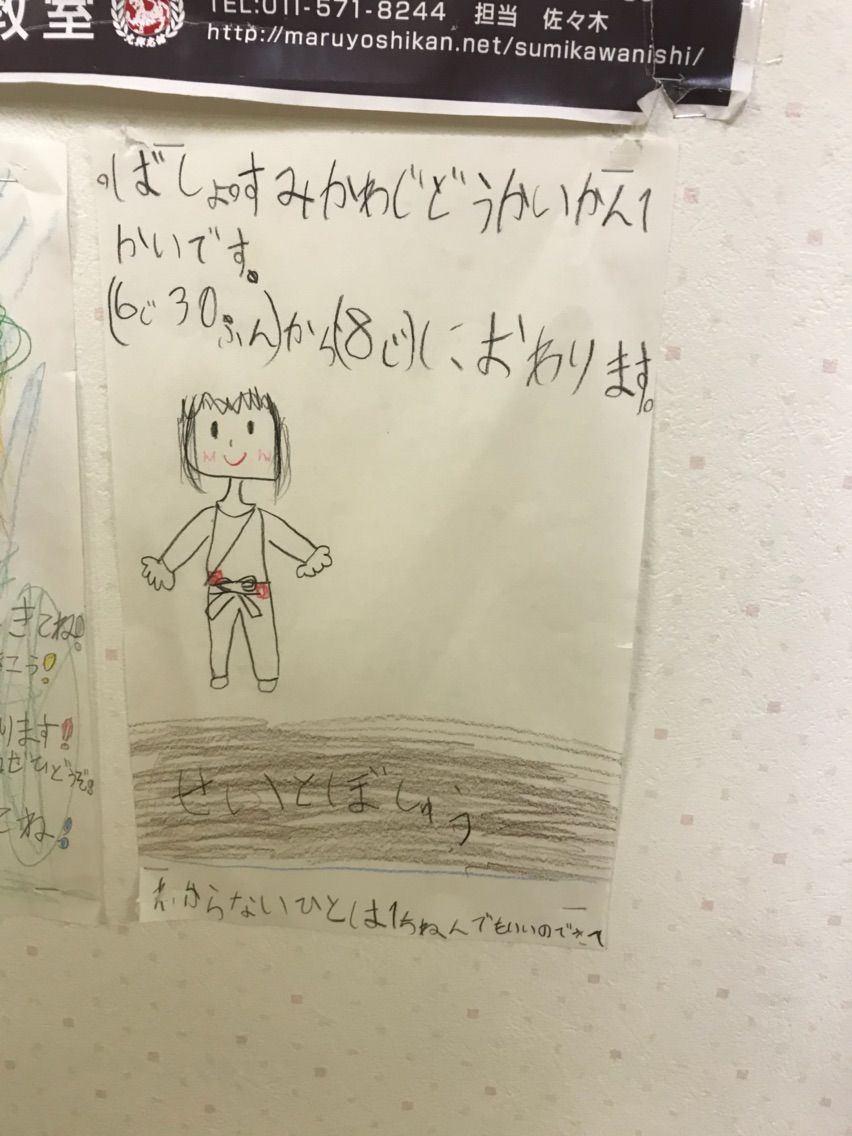 教室
TEL:011-571-8244 担当 佐々木
http://maruyoshikan.net/sumikawanishi/
のばしょのすみかわじどうかいかん1
かいです。
(6じ30ぷん)から(8じ)におわります。
せいとぼしゅう
わからないひとは1ちねんでもいいのできて
きてね!
こう!
ります!
ぜひどうぞ!
てね!